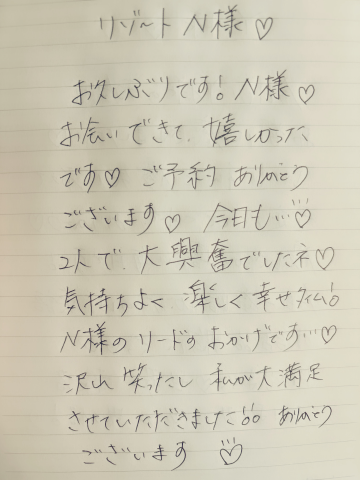 リゾート N様♡
お久しぶりです! N様♡
お会いできて、嬉しかった
です♡ ご予約 ありがとう
ございます♡ 今日も…♡
2人で、大興奮でしたネ♡
気持ちよく、楽しく 幸せタイム!
N様のリードのおかげです…♡
沢山 笑ったし 私が大満足
させていただきました!! ありがとう
ございます ♡